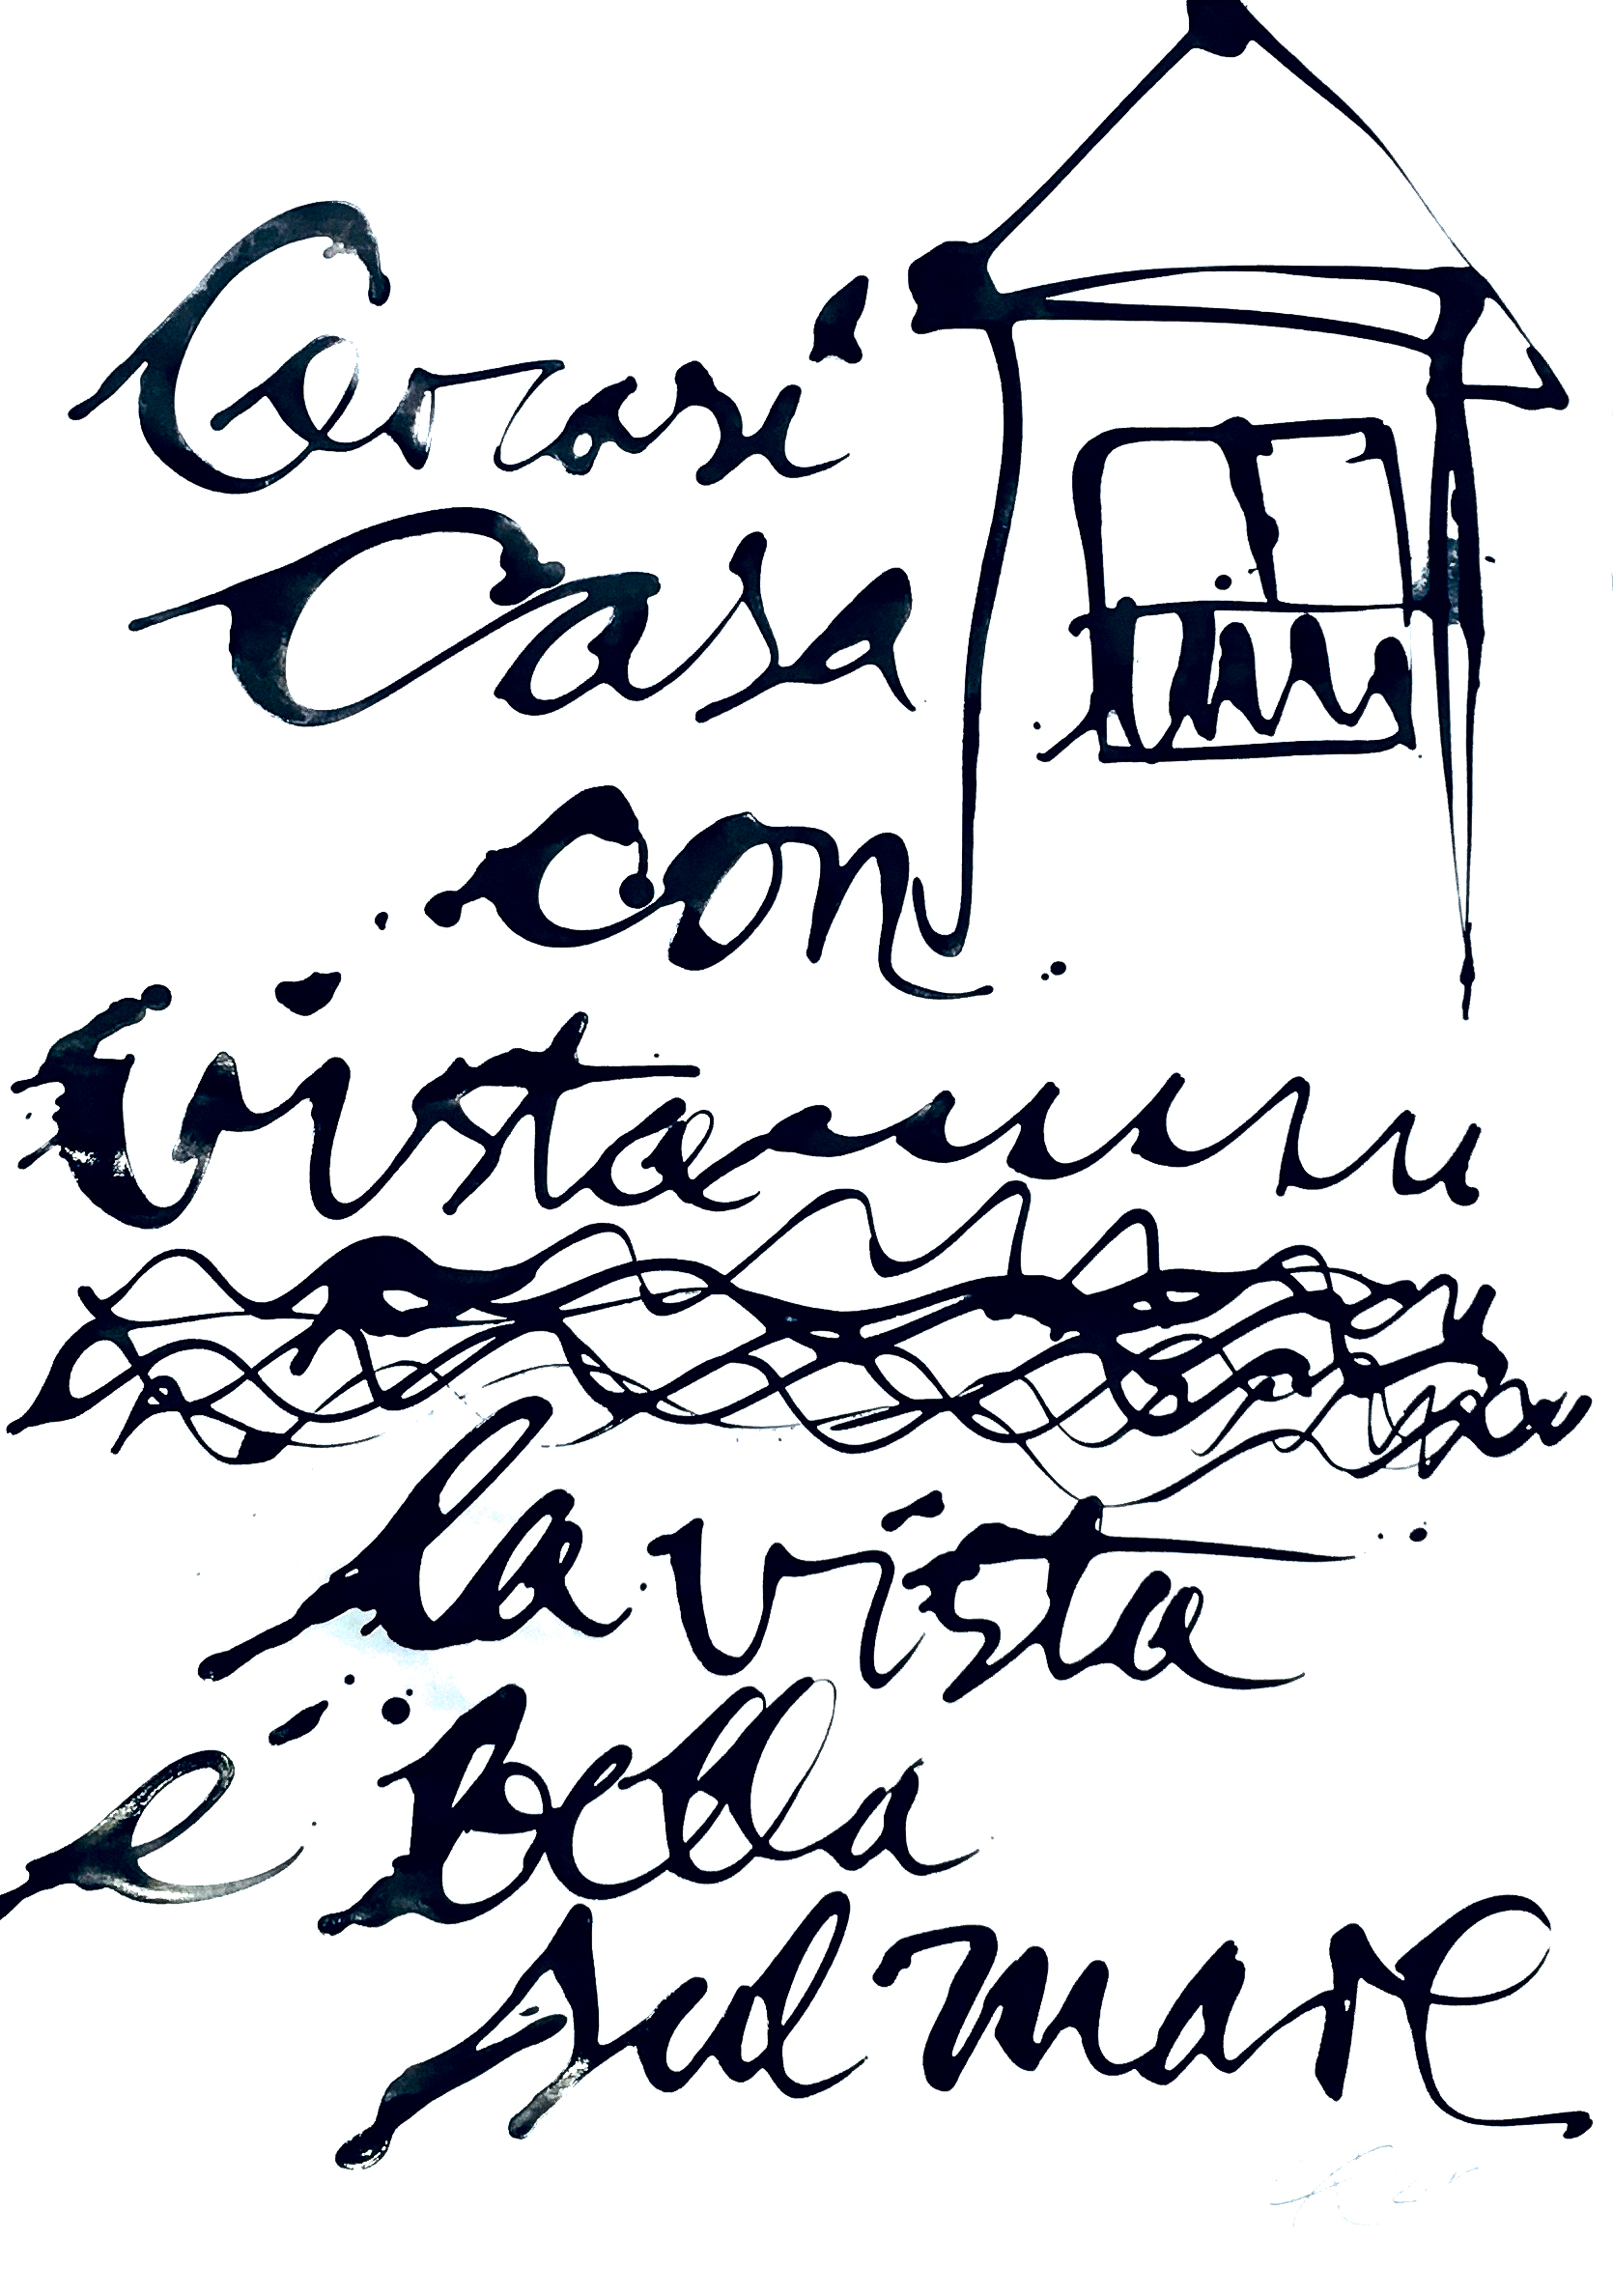 Cerasi
Casa
con
vista
la vista
e' bella
sul mare